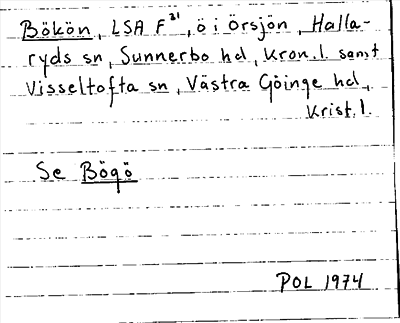 Bökön, LSA F³¹, ö i Örsjön, Halla-
ryds sn, Sunnerbo hd, Kron.l. samt
Visseltofta sn, Västra Göinge hd,
Krist.l.
Se Bögö
POL 1974